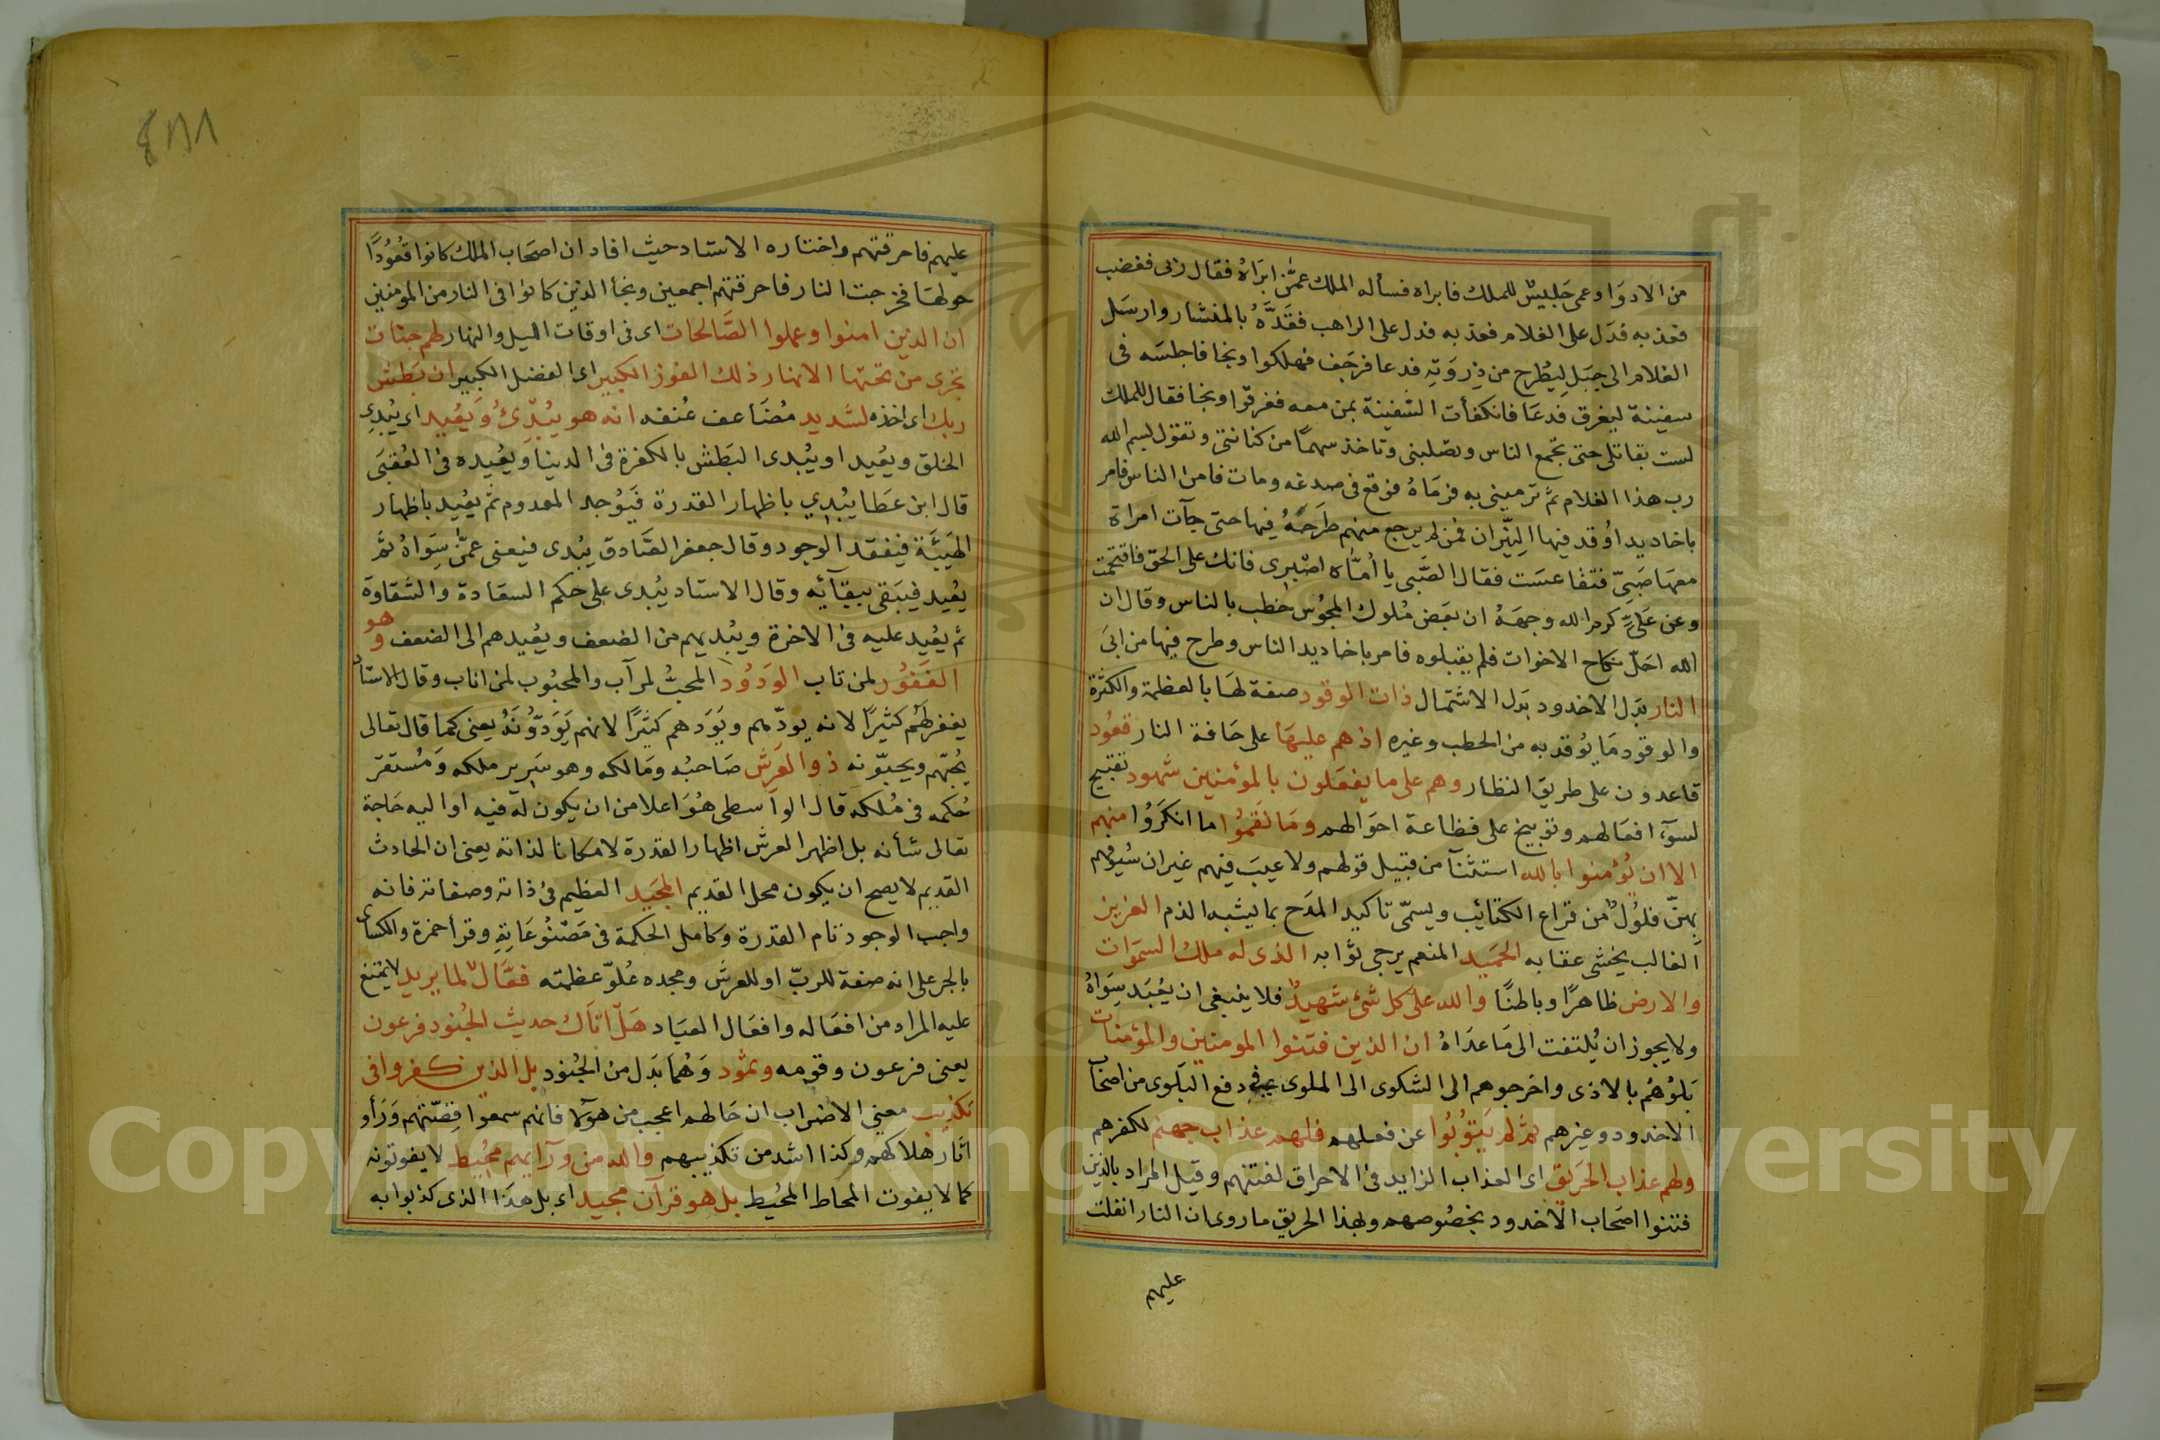 من الادوا وعمى جليس للملك فابراه فسأله الملك عمّن ابراه فقال ربى فغضب
فعذبه فدل على الغلام فعذبه فدل على الراهب فقدّه بالمنشار وارسل
الغلام الى جبل ليطرح من ذروته فدعا فرجف فهلكوا ونجا فاجلسه فى
سفينة ليغرق فدعا فانكفأت السفينة بمن معه فغرقوا ونجا فقال للملك
لست بقاتلى حتى تجمع الناس وتصلبنى وتاخذ سهما من كنانتى وتقول بسم الله
رب هذا الغلام ثم ترمينى به فرماه فوقع فى صدغه ومات فامن الناس فامر
باخاديد اوقد فيها النيران فمن لم يرجع منهم طرحه فيها حتى جآت امراة
معها صبىّ فتقاعست فقال الصبى يا امّاه اصبرى فانك على الحق فاقتحمت
وعن علىّ كرم الله وجهه ان بعض ملوك المجوس خطب بالناس وقال ان
الله احلّ نكاح الاخوات فلم يقبلوه فامر باخاديد الناس وطرح فيها من ابى
النار بدل الاخدود بدل الاشتمال ذات الوقود صفة لها بالعظمة والكثرة
والوقود ما يوقد به من الحطب وغيره اذ هم عليها على حافة النار قعود
قاعدون على طريق النظار وهم على ما يفعلون بالمؤمنين شهود تقبيح
لسوء افعالهم وتوبيخ على فظاعة احوالهم وما نقموا ما انكروا منهم
الا ان يؤمنوا بالله استثنآ من قبيل قولهم ولا عيب فيهم غير ان سيوفهم
بهنّ فلول من قراع الكتائب ويسمّى تاكيد المدح بما يشبه الذم العزيز
الغالب يخشى عقابه الحميد المنعم يرجى ثوابه الذى له ملك السموات
والارض ظاهرا وباطنا والله على كل شئ شهيد فلا ينبغى ان يعبد سواه
ولا يجوز ان يلتفت الى ما عداه ان الذين فتنوا المومنين والمؤمنات
بلوهم بالاذى واخرجوهم الى الشكوى الى المولى فى دفع البلوى من اصحاب
الاخدود وغيرهم ثم لم يتوبوا عن فعلهم فلهم عذاب جهنم لكفرهم
ولهم عذاب الحريق اى العذاب الزايد فى الاحراق لفتنهم وقيل المراد بالذين
فتنوا اصحاب الاخدود بخصوصهم وبهذا الحريق ما روى ان النار انفلتت
عليهم
٤٨٨
عليهم فاحرقتهم واختاره الاستاد حيث افاد ان اصحاب الملك كانوا قعودا
حولها فخرجت النار فاحرقتهم اجمعين ونجأ الذين كانوا فى النار من المومنين
ان الذين امنوا وعملوا الصالحات اى فى اوقات الليل والنهار لهم جنات
تجرى من تحتها الانهار ذلك الفوز الكبير اى الفضل الكبير ان بطش
ربك اى اخذه لشديد مضاعف عنفه انه هو يبدئ ويعيد اى يبدى
الخلق ويعيد او يبدى البطش بالكفرة فى الدنيا ويعيده فى العقبى
قال ابن عطا يبدى باظهار القدرة فيوجد المعدوم ثم يعيد باظهار
الهيبة فيفقد الوجود وقال جعفر الصادق يبدى فيفنى عمّن سواه ثم
يعيد فيبقى ببقآئه وقال الاستاد يبدى على حكم السعادة والشقاوة
ثم يعيد عليه فى الاخرة ويبديهم من الضعف ويعيدهم الى الضعف وهو
الغفور لمن تاب الودود المحب لمن آب والمحبوب لمن اناب وقال الاستاد
يغفر لهم كثيرا لانه يودّهم ويودهم كثيرا لانهم يودّونه يعنى كما قال تعالى
يحبّهم ويحبّونه ذو العرش صاحبه ومالكه وهو سرير ملكه ومستقر
حكمه فى ملكه قال الواسطى هو اعلا من ان يكون له فيه او اليه حاجة
تعالى شأنه بل اظهر العرش اظهار القدرة لا مكانا لذاته يعنى ان الحادث
القديم لا يصح ان يكون محل القديم المجيد العظيم فى ذاته وصفاته فانه
واجب الوجود تام القدرة وكامل الحكمة فى مصنوعاته وقرأ حمزة والكسائى
بالجر على انه صفة للربّ او للعرش ومجده علوّ عظمته فعّال لما يريد لا يمتنع
عليه المراد من افعاله وافعال العباد هل اتاك حديث الجنود فرعون
يعنى فرعون وقومه وثمود وهما بدل من الجنود بل الذين كفروا فى
تكذيب معنى الاضراب ان حالهم اعجب من هولآ فانهم سمعوا قصّتهم ورأو
اثار هلاكهم وكذا اشد من تكذيبهم والله من ورآيهم محيط لا يفوتونه
كما لا يفوت المحاط المحيط بل هو قرآن مجيد اى بل هذا الذى كذبوا به
Copyright © King Saud University